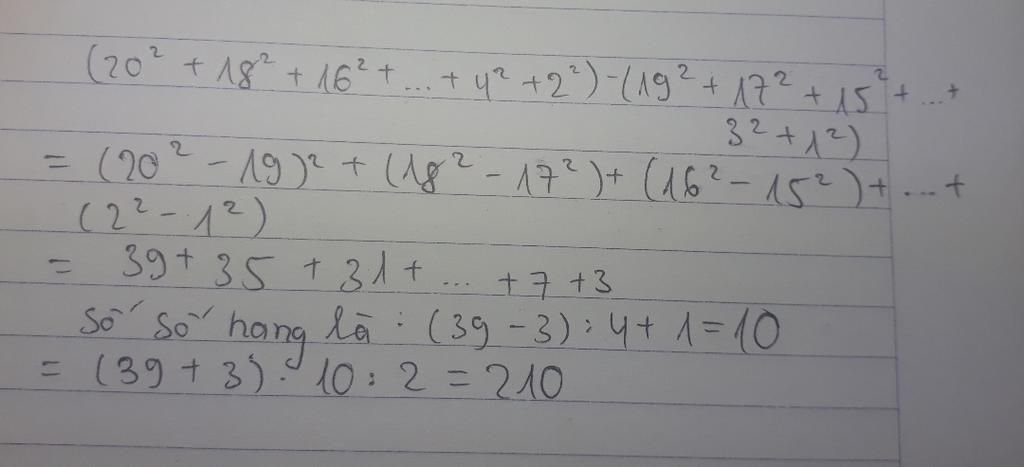 (20² + 18² + 16² + ... + 4² + 2²) - (19² + 17² + 15² + ... +
3² + 1²)
= (20² - 19)² + (18² - 17²) + (16² - 15²) + ... +
(2² - 1²)
= 39 + 35 + 31 + ... + 7 + 3
Số số hang là : (39 - 3) : 4 + 1 = 10
= (39 + 3) . 10 : 2 = 210